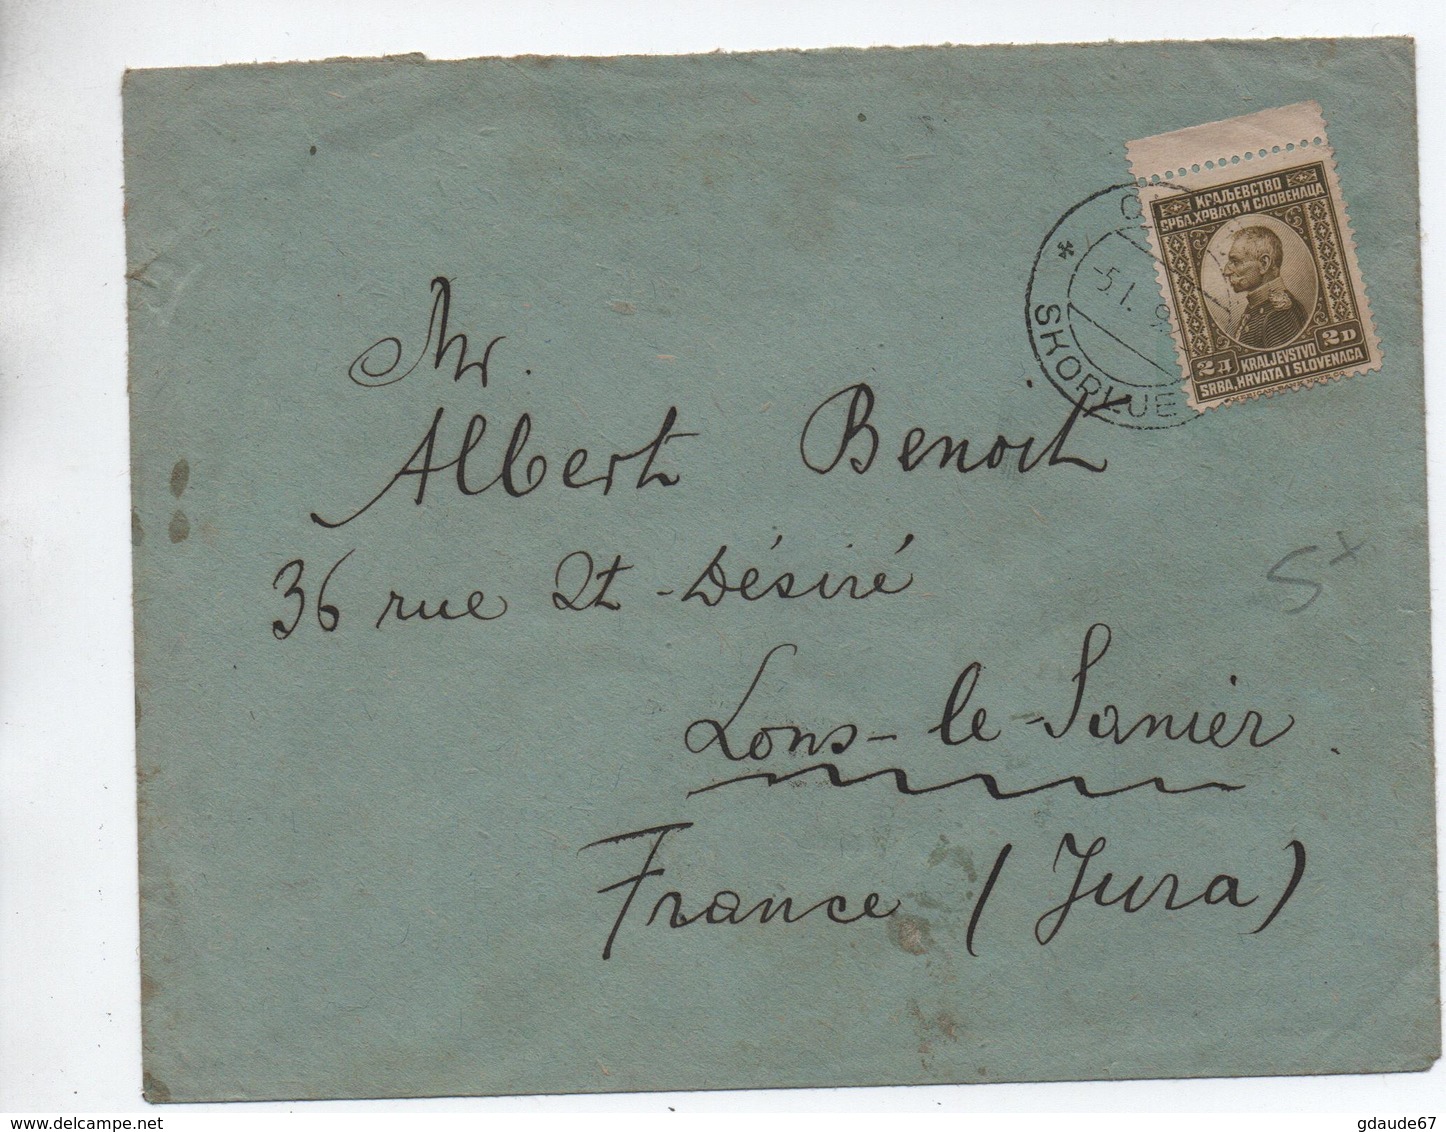 КРАЉЕВСТВО
СРБА, ХРВАТА И СЛОВЕНАЦА
2Д 2D
KRALJEVSTVO
SRBA, HRVATA I SLOVENACA
5.I.
Mr.
Albert Benoit
36 rue St-Désiré
5x
Lons-le-Sanier.
France (Jura)
delcampe.net
gdaude67